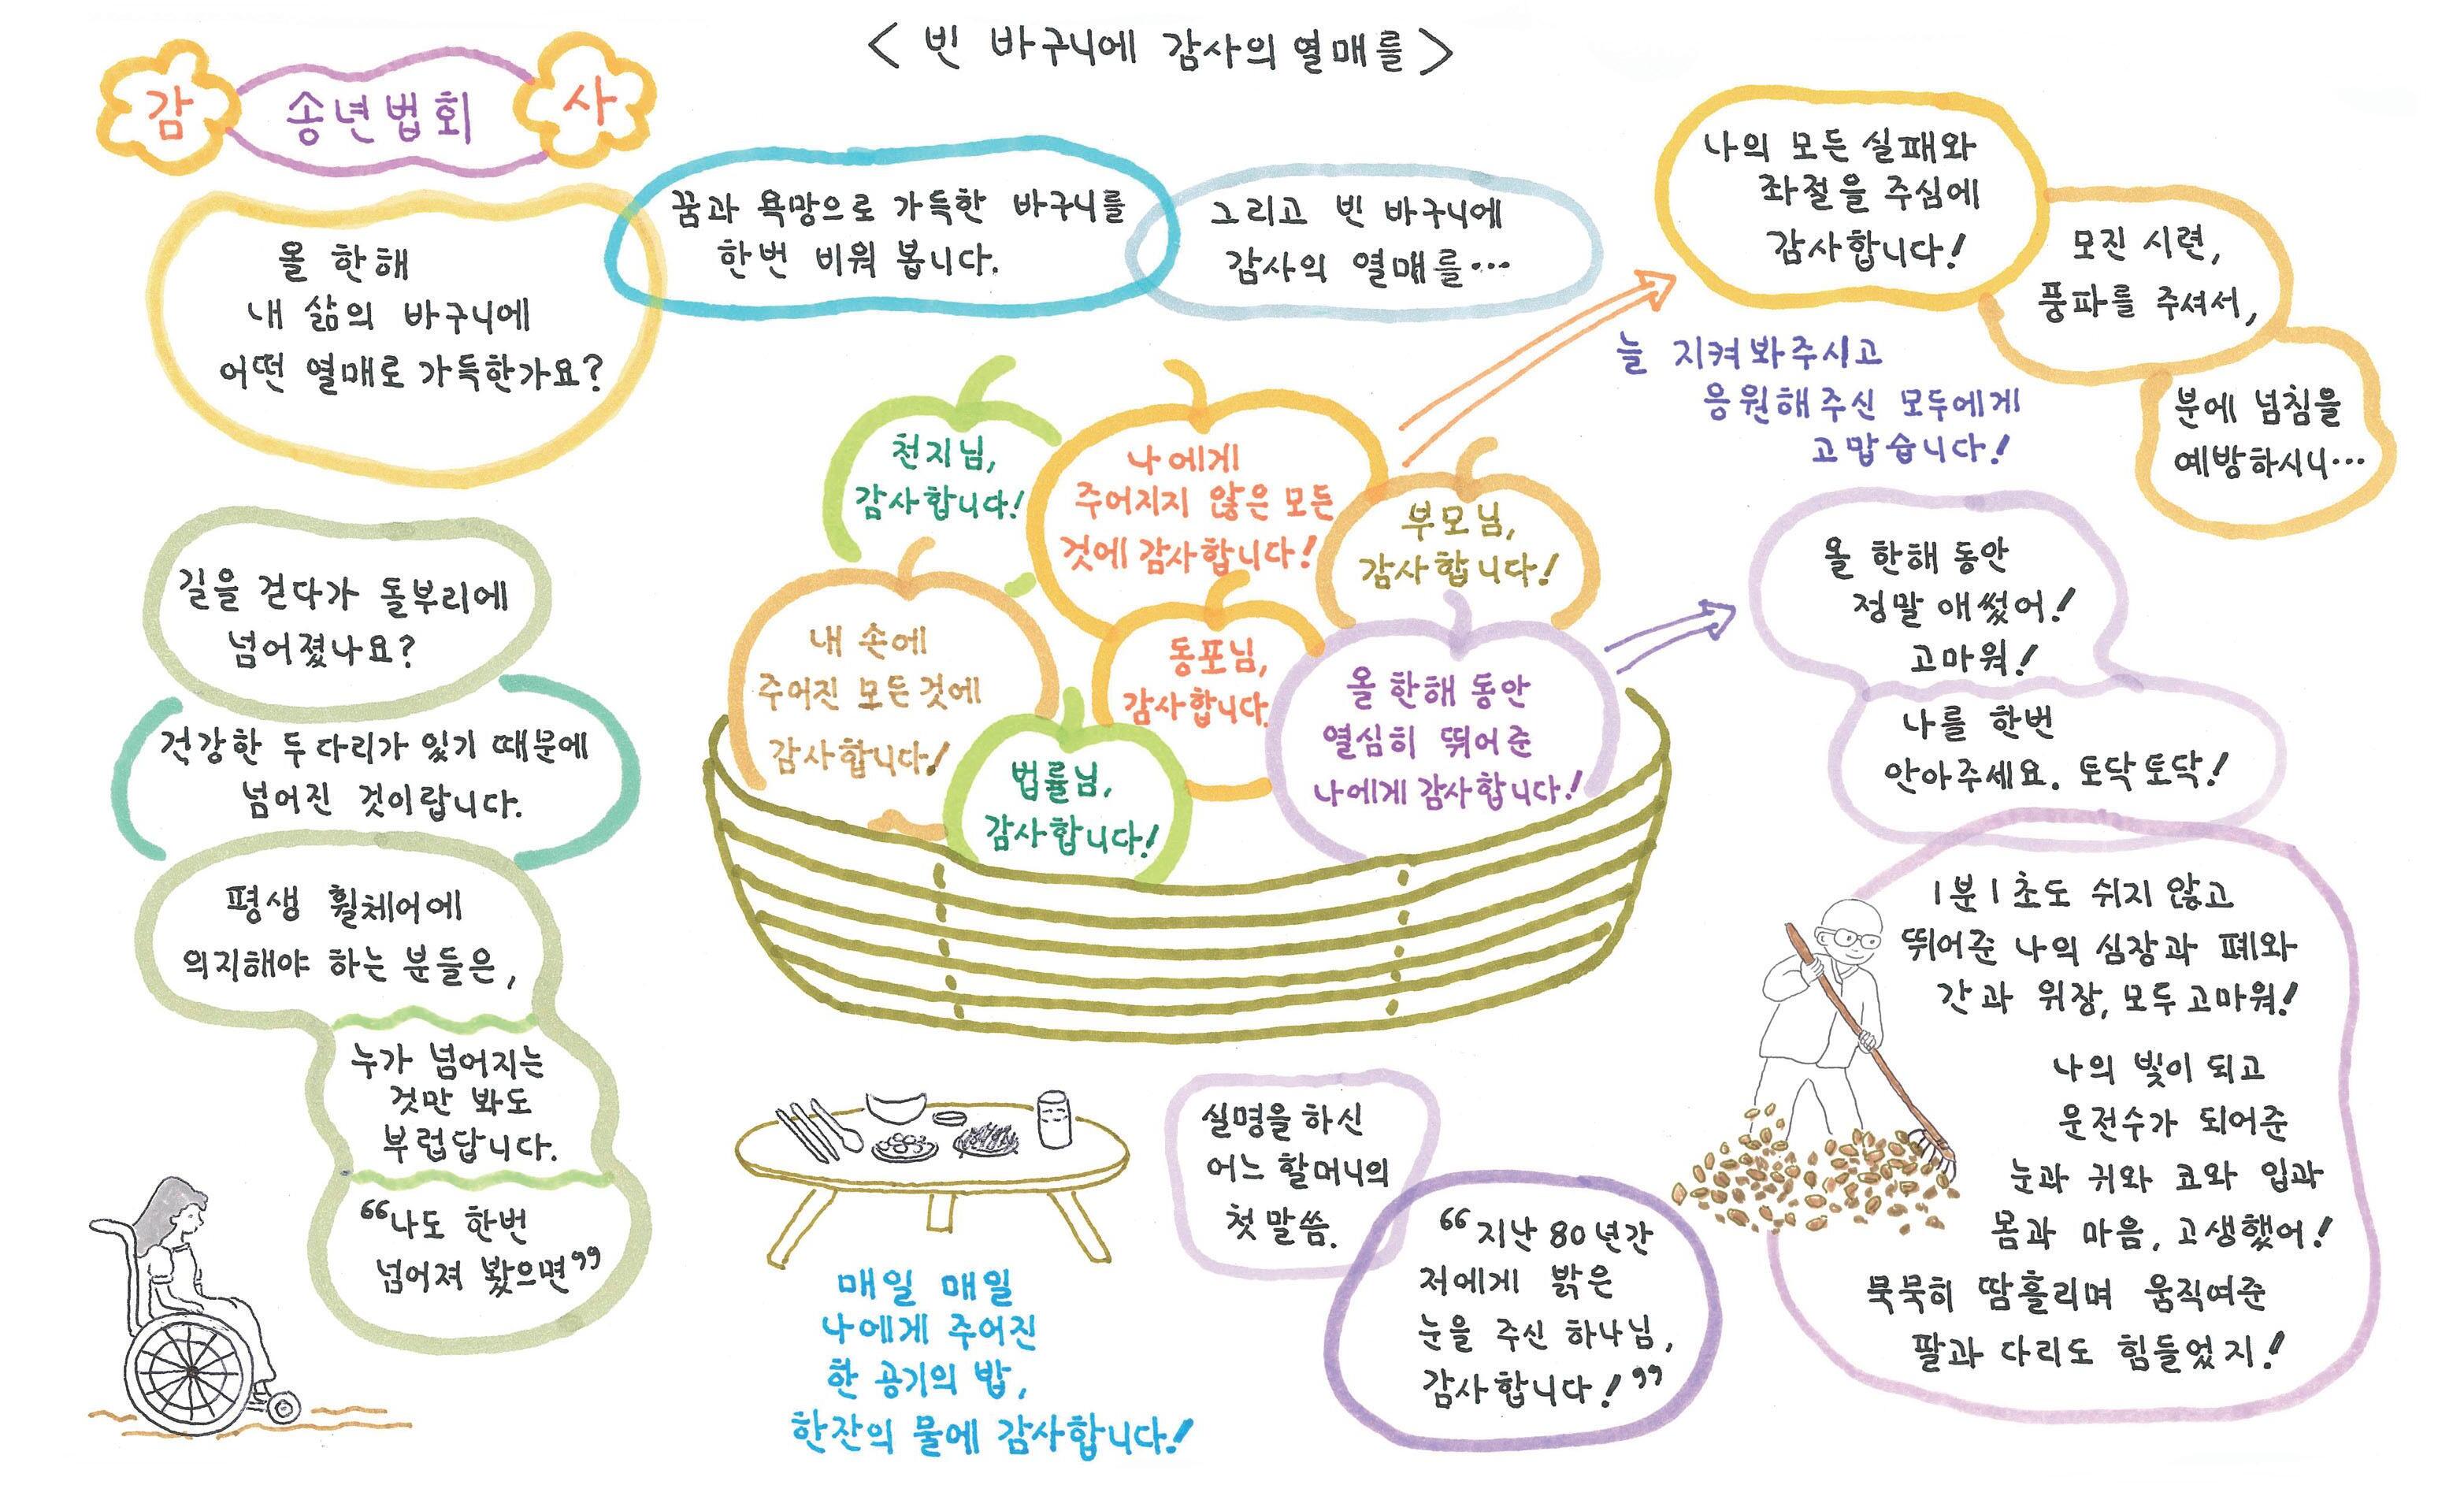 < 빈 바구니에 감사의 열매를 >
감
송년법회
사
올 한해
내 삶의 바구니에
어떤 열매로 가득한가요?
꿈과 욕망으로 가득한 바구니를
한번 비워 봅니다.
그리고 빈 바구니에
감사의 열매를…
나의 모든 실패와
좌절을 주심에
감사합니다!
모진 시련,
풍파를 주셔서,
분에 넘침을
예방하시니…
늘 지켜봐주시고
응원해주신 모두에게
고맙습니다!
천지님,
감사합니다!
나에게
주어지지 않은 모든
것에 감사합니다!
부모님,
감사합니다!
내 손에
주어진 모든것에
감사합니다!
동포님,
감사합니다.
법률님,
감사합니다!
올 한해 동안
열심히 뛰어준
나에게 감사합니다!
길을 걷다가 돌부리에
넘어졌나요?
건강한 두다리가 있기 때문에
넘어진 것이랍니다.
평생 휠체어에
의지해야 하는 분들은,
누가 넘어지는
것만 봐도
부럽답니다.
“나도 한번
넘어져 봤으면”
매일 매일
나에게 주어진
한 공기의 밥,
한잔의 물에 감사합니다!
실명을 하신
어느 할머니의
첫 말씀.
“지난 80년간
저에게 밝은
눈을 주신 하나님,
감사합니다!”
올 한해 동안
정말 애썼어!
고마워!
나를 한번
안아주세요. 토닥토닥!
1분1초도 쉬지 않고
뛰어준 나의 심장과 폐와
간과 위장, 모두고마워!
나의 빛이 되고
운전수가 되어준
눈과 귀와 코와 입과
몸과 마음, 고생했어!
묵묵히 땀흘리며 움직여준
팔과 다리도 힘들었지!